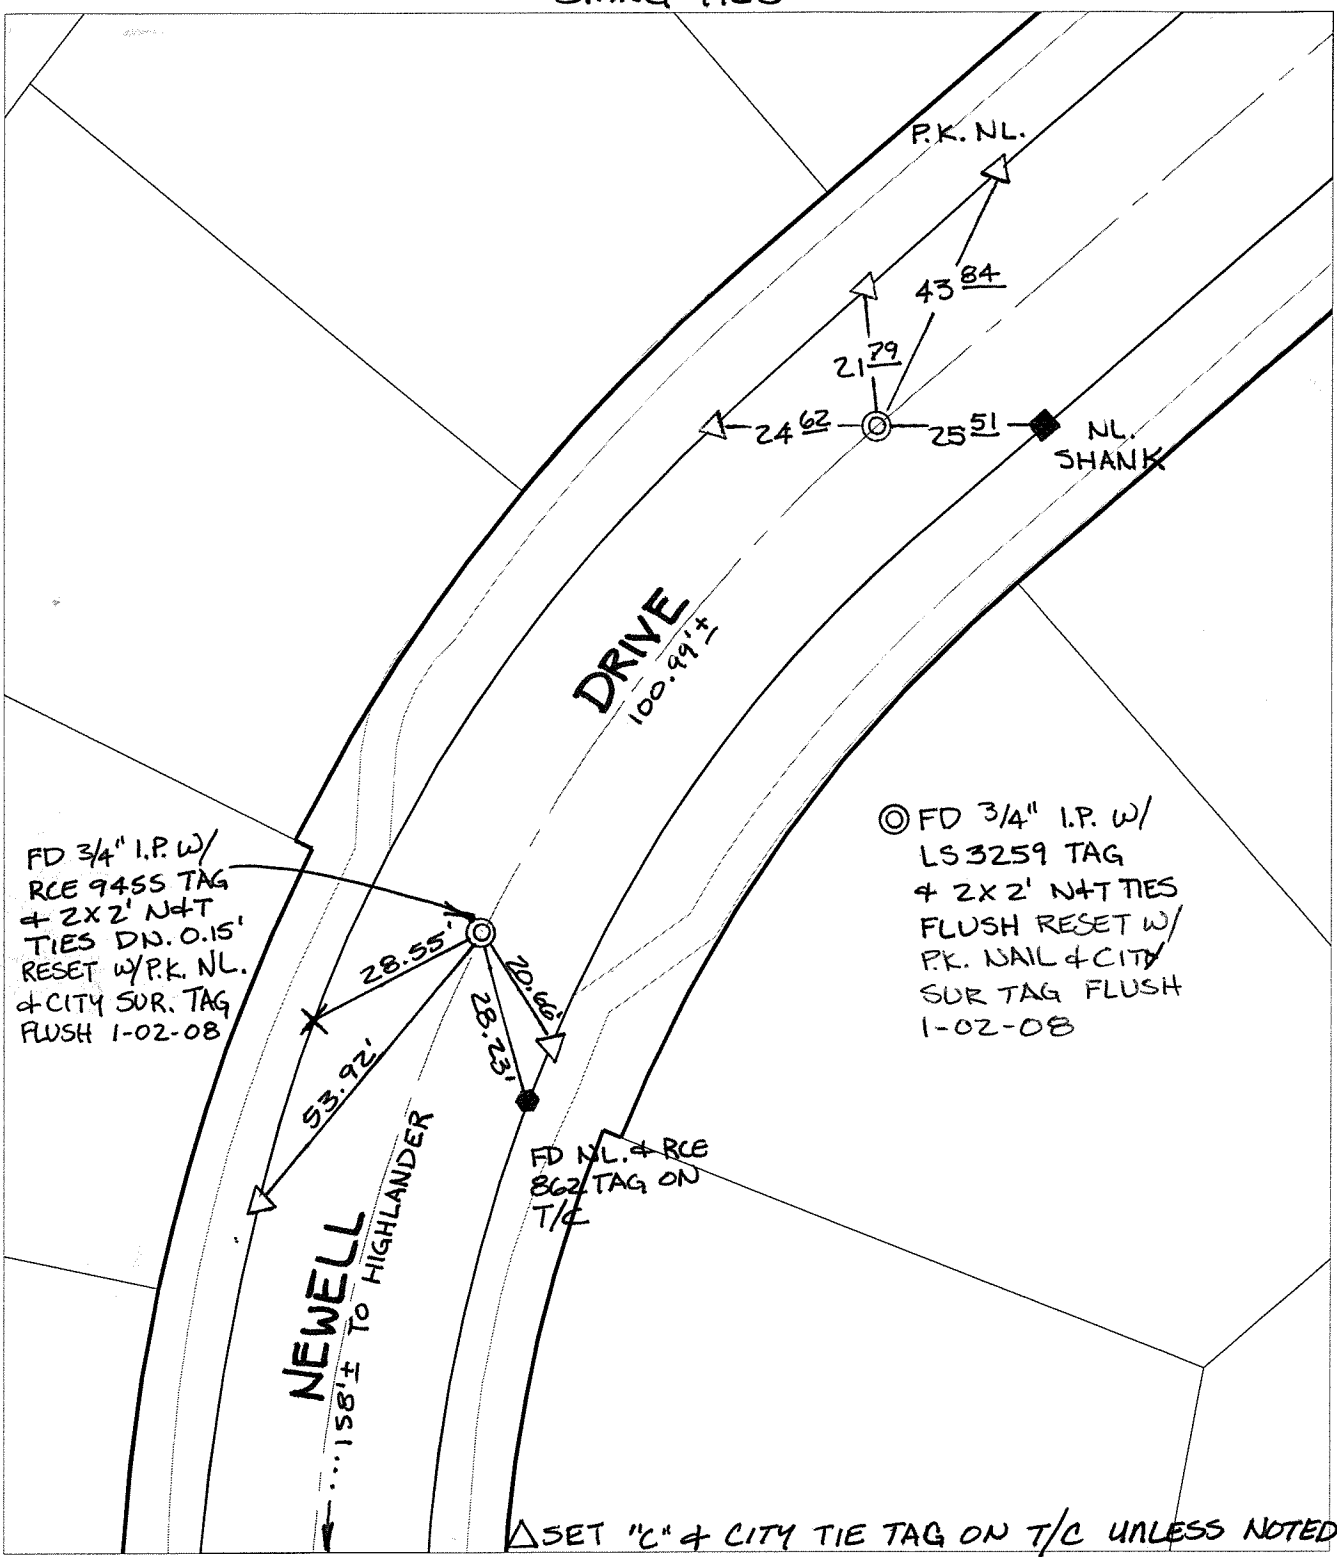 P.K. NL.
43 84
21 79
24 62
25 51
NL.
SHANK
DRIVE
100.99'±
FD 3/4" I.P. W/
RCE 9455 TAG
& 2X2' N&T
TIES DN. 0.15'
RESET W/P.K. NL.
& CITY SUR. TAG
FLUSH 1-02-08
FD 3/4" I.P. W/
LS 3259 TAG
& 2X2' N&T TIES
FLUSH RESET W/
P.K. NAIL & CITY
SUR TAG FLUSH
1-02-08
28.55'
20.66'
28.23'
53.92'
FD NL. & RCE
862 TAG ON
T/C
NEWELL
...158'± TO HIGHLANDER
SET "C" & CITY TIE TAG ON T/C UNLESS NOTED